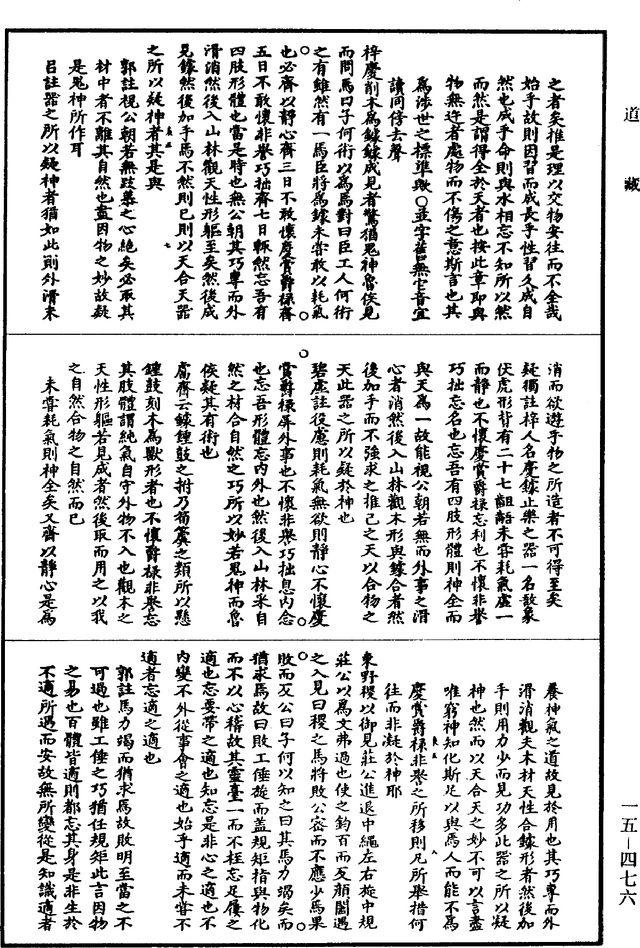 道藏
之者矣推是理以交物安往而不全哉
始乎故則因習而成長乎性習久成自
然也成乎命則與水相忘不知所以然
而然是謂得全於天者也按此章即與
物無迕者處物而不傷之意斯言也其
為涉世之標準歟○並字舊無它音宜
讀同傍去聲
梓慶削木為鐻鐻成見者驚猶鬼神魯侯見
而問焉曰子何術以為焉對曰臣工人何術
之有雖然有一焉臣將為鐻未嘗敢以耗氣
也必齊以靜心齊三日不敢懷慶賞爵祿齊
五日不敢懷非譽巧拙齊七日輒然忘吾有
四肢形體也當是時也無公朝其巧專而外
滑消然後入山林觀天性形軀至矣然後成
見鐻然後加手焉不然則已則以天合天器
之所以疑神者其是與
郭註視公朝若無跂慕之心絕矣必取其
材中者不離其自然也盡因物之妙故疑
是鬼神所作耳
呂註器之所以疑神者猶如此則外滑未
消而欲遊乎物之所造者不可得至矣
疑獨註梓人名慶鐻止樂之器一名敔象
伏虎形背有二十七齟齬未嘗耗氣虛一
而靜也不懷慶賞爵祿忘利也不懷非譽
巧拙忘名也忘吾有四肢形體則神全而
與天為一故能視公朝若無而外事之滑
心者消然後入山林觀木形與鐻合者然
後加手而不強求之推己之天以合物之
天此器之所以疑於神也
碧虛註役慮則耗氣無欲則靜心不懷慶
賞爵祿屏外事也不懷非譽巧拙息內念
也忘吾形體忘內外也然後入山林采自
然之材合自然之巧所以妙若鬼神而魯
侯疑其有術也
鬳齋云鐻鍾鼓之柎乃筍簴之類所以懸
鍾鼓刻木為獸形者也不懷爵祿非譽忘
其肢體謂純氣自守外物不入也觀木之
天性形軀若見成者然後取而用之以我
之自然合物之自然而已
未嘗耗氣則神全矣又齋以靜心是為
養神氣之道故見於用也其巧專而外
滑消觀夫木材天性合鐻形者然後加
手則用力少而見功多此器之所以疑
神也然而以天合天之妙不可以言盡
唯窮神知化斯足以與焉人而能不為
慶賞爵祿非譽之所移則凡所舉措何
往而非凝於神耶
東野稷以御見莊公進退中繩左右旋中規
莊公以為文弗過也使之鈎百而反顏闔遇
之入見曰稷之馬將敗公密而不應少焉果
敗而反公曰子何以知之曰其馬力竭矣而
猶求焉故曰敗工倕旋而蓋規矩指與物化
而不以心稽故其靈臺一而不桎忘足屨之
適也忘要帶之適也知忘是非心之適也不
內變不外從事會之適也始乎適而未嘗不
適者忘適之適也
郭註馬力竭而猶求焉故敗明至當之不
可過也雖工倕之巧猶任規矩此言因物
之易也百體皆適則都忘其身是非生於
不適所遇而安故無所變從是知識適者
一五—四七六